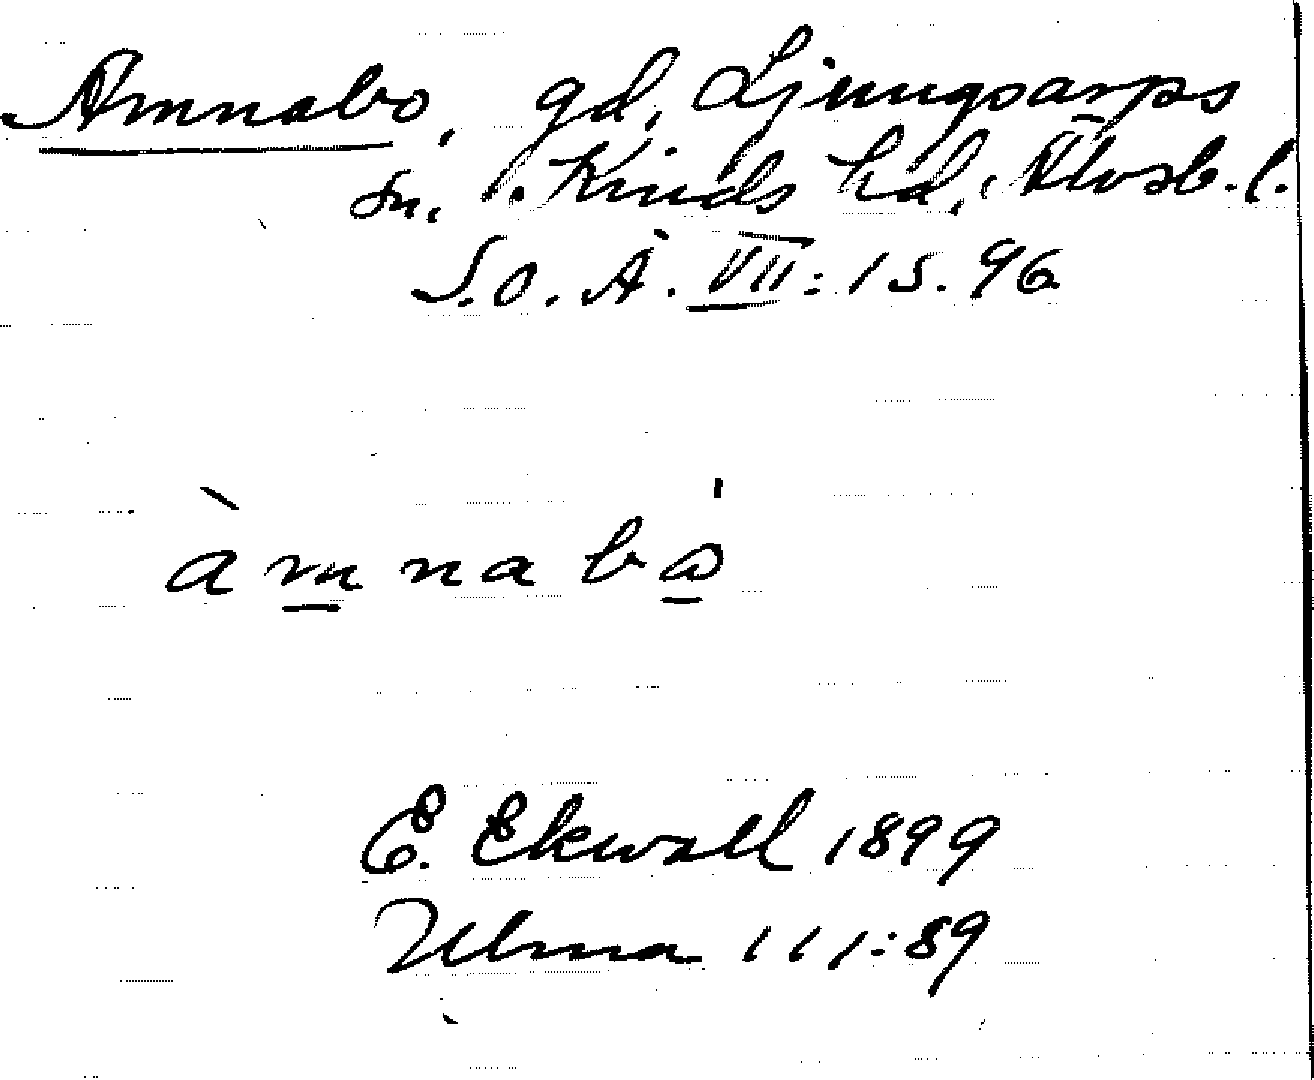 Amnabo, gd, Ljungsarps
sn. Kinds hd, Älvsb. l.
S.O.Ä. VII: 1 s. 96
àmnabo
E. Ekwall 1899
Ulma 111:89